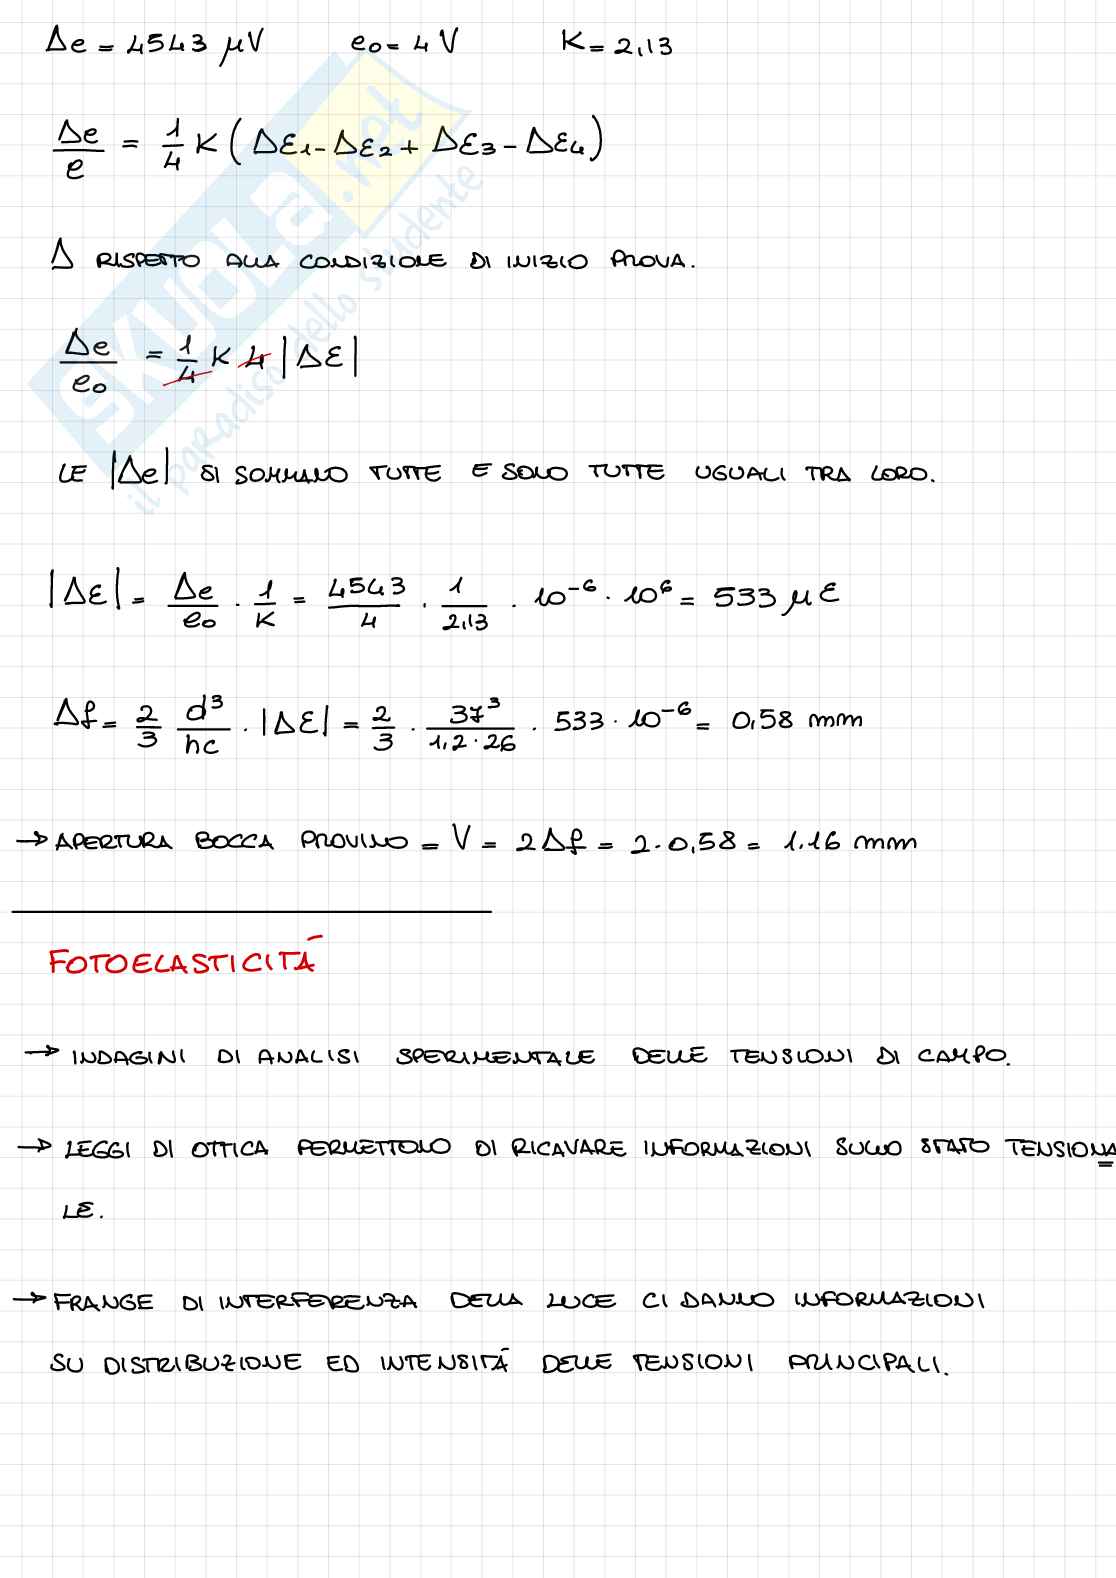 Δe = 4543 μV e₀ = 4 V K = 2,13
Δe/e = 1/4 K (Δε₁ - Δε₂ + Δε₃ - Δε₄)
Δ RISPETTO ALLA CONDIZIONE DI INIZIO PROVA.
Δe/e₀ = 1/4 K 4 |Δε|
LE |Δe| SI SOMMANO TUTTE E SONO TUTTE UGUALI TRA LORO.
|Δε| = Δe/e₀ · 1/K = 4543/4 · 1/2,13 · 10⁻⁶ · 10⁶ = 533 με
Δf = 2/3 d³/hc · |Δε| = 2/3 · 37³/1,2·26 · 533 · 10⁻⁶ = 0,58 mm
→ APERTURA BOCCA PROVINO = V = 2Δf = 2·0,58 = 1.16 mm
FOTOELASTICITÁ
→ INDAGINI DI ANALISI SPERIMENTALE DELLE TENSIONI DI CAMPO.
→ LEGGI DI OTTICA PERMETTONO DI RICAVARE INFORMAZIONI SULLO STATO TENSIONA
LE.
→ FRANGE DI INTERFERENZA DELLA LUCE CI DANNO INFORMAZIONI
SU DISTRIBUZIONE ED INTENSITÁ DELLE TENSIONI PRINCIPALI.
SKUOLA.net
il paradiso dello studente